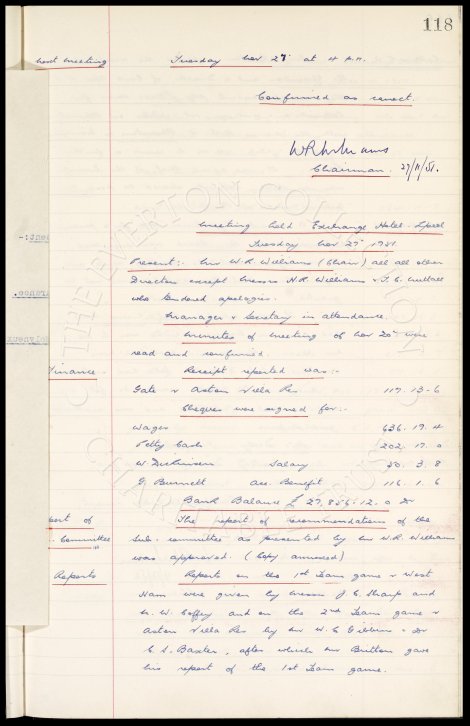 118
Next meeting Tuesday Nov 27th at 4 p.m.
Confirmed as correct.
W R Williams
Chairman. 27/11/51.
Meeting held Exchange Hotel. L'pool
Tuesday Nov 27th 1951
Present:- Mr W. R. Williams (Chair) all other
Directors except Messrs H. R. Williams & J. C.
who tendered apologies.
Manager & Secretary in attendance.
Minutes of meeting of Nov 20th were
read and confirmed
Finance. Receipt reported was:-
Gate v Aston Villa Res 117. 13 - 6
Cheques were signed for:-
Wages 636. 19. 4
Petty Cash 202. 17. 0
W. Dickinson Salary 50. 3. 8
G. Burnett Acc. Benefit 116. 1. 6
Bank Balance £ 27,856. 12. 0 Dr
port of The report of recommendations of the
Committee Sub. committee as presented by Mr W. R. Williams
was approved. (Copy annexed)
Reports Reports on the 1st Team game v West
Ham were given by Messrs J. C. Sharp and
N. W. Coffey and on the 2nd Team game v
Aston Villa Res by Mr W. C. Gibbins & Dr
C. S. Baxter, after which Mr Britton gave
his report of the 1st Team game.
THE EVERTON COLLECTION
CHARITABLE TRUST